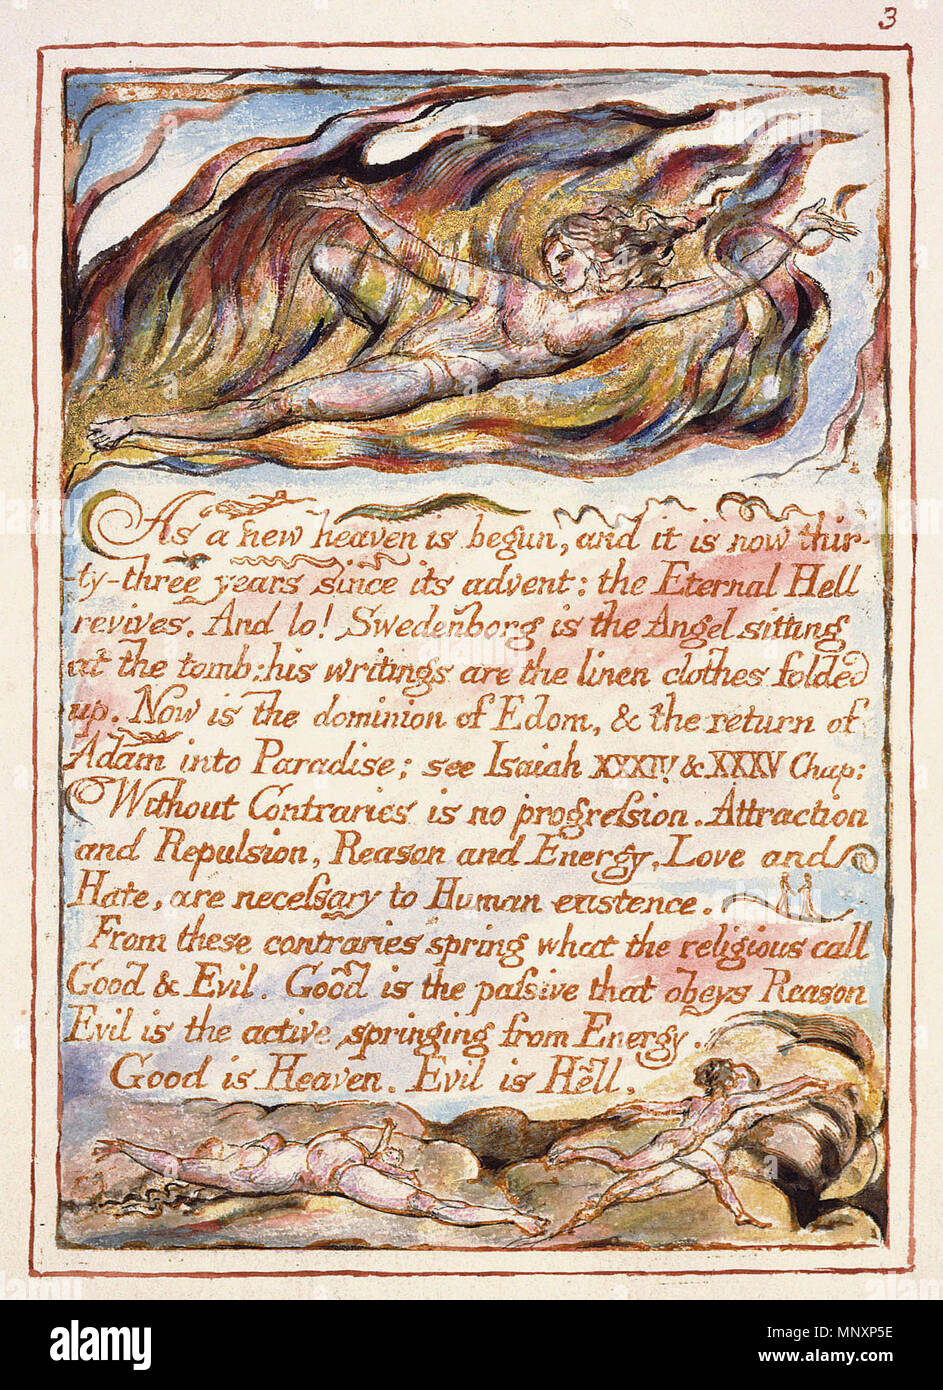 3
As a new heaven is begun, and it is now thir-
-ty-three years since its advent: the Eternal Hell
revives. And lo! Swedenborg is the Angel sitting
at the tomb: his writings are the linen clothes folded
up. Now is the dominion of Edom, & the return of
Adam into Paradise; see Isaiah XXXIV & XXXV Chap:
Without Contraries is no progreſsion. Attraction
and Repulsion, Reason and Energy, Love and
Hate, are neceſsary to Human existence.
From these contraries spring what the religious call
Good & Evil. Good is the paſsive that obeys Reason
Evil is the active springing from Energy.
Good is Heaven. Evil is Hell.
alamy
Image ID: MNXP5E
www.alamy.com